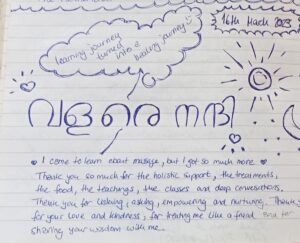 learning journey
turned
into a
healing journey
16th March 2023
വളരെ നന്ദി
I came to learn about massage, but I got so much more
Thank you so much for the holistic support, the treatments,
the food, the teachings, the classes and deep conversations.
Thank you for listening, asking, empowering and nurturing. Thank
for your love and kindness, for treating me like a friend and for
sharing your wisdom with me.